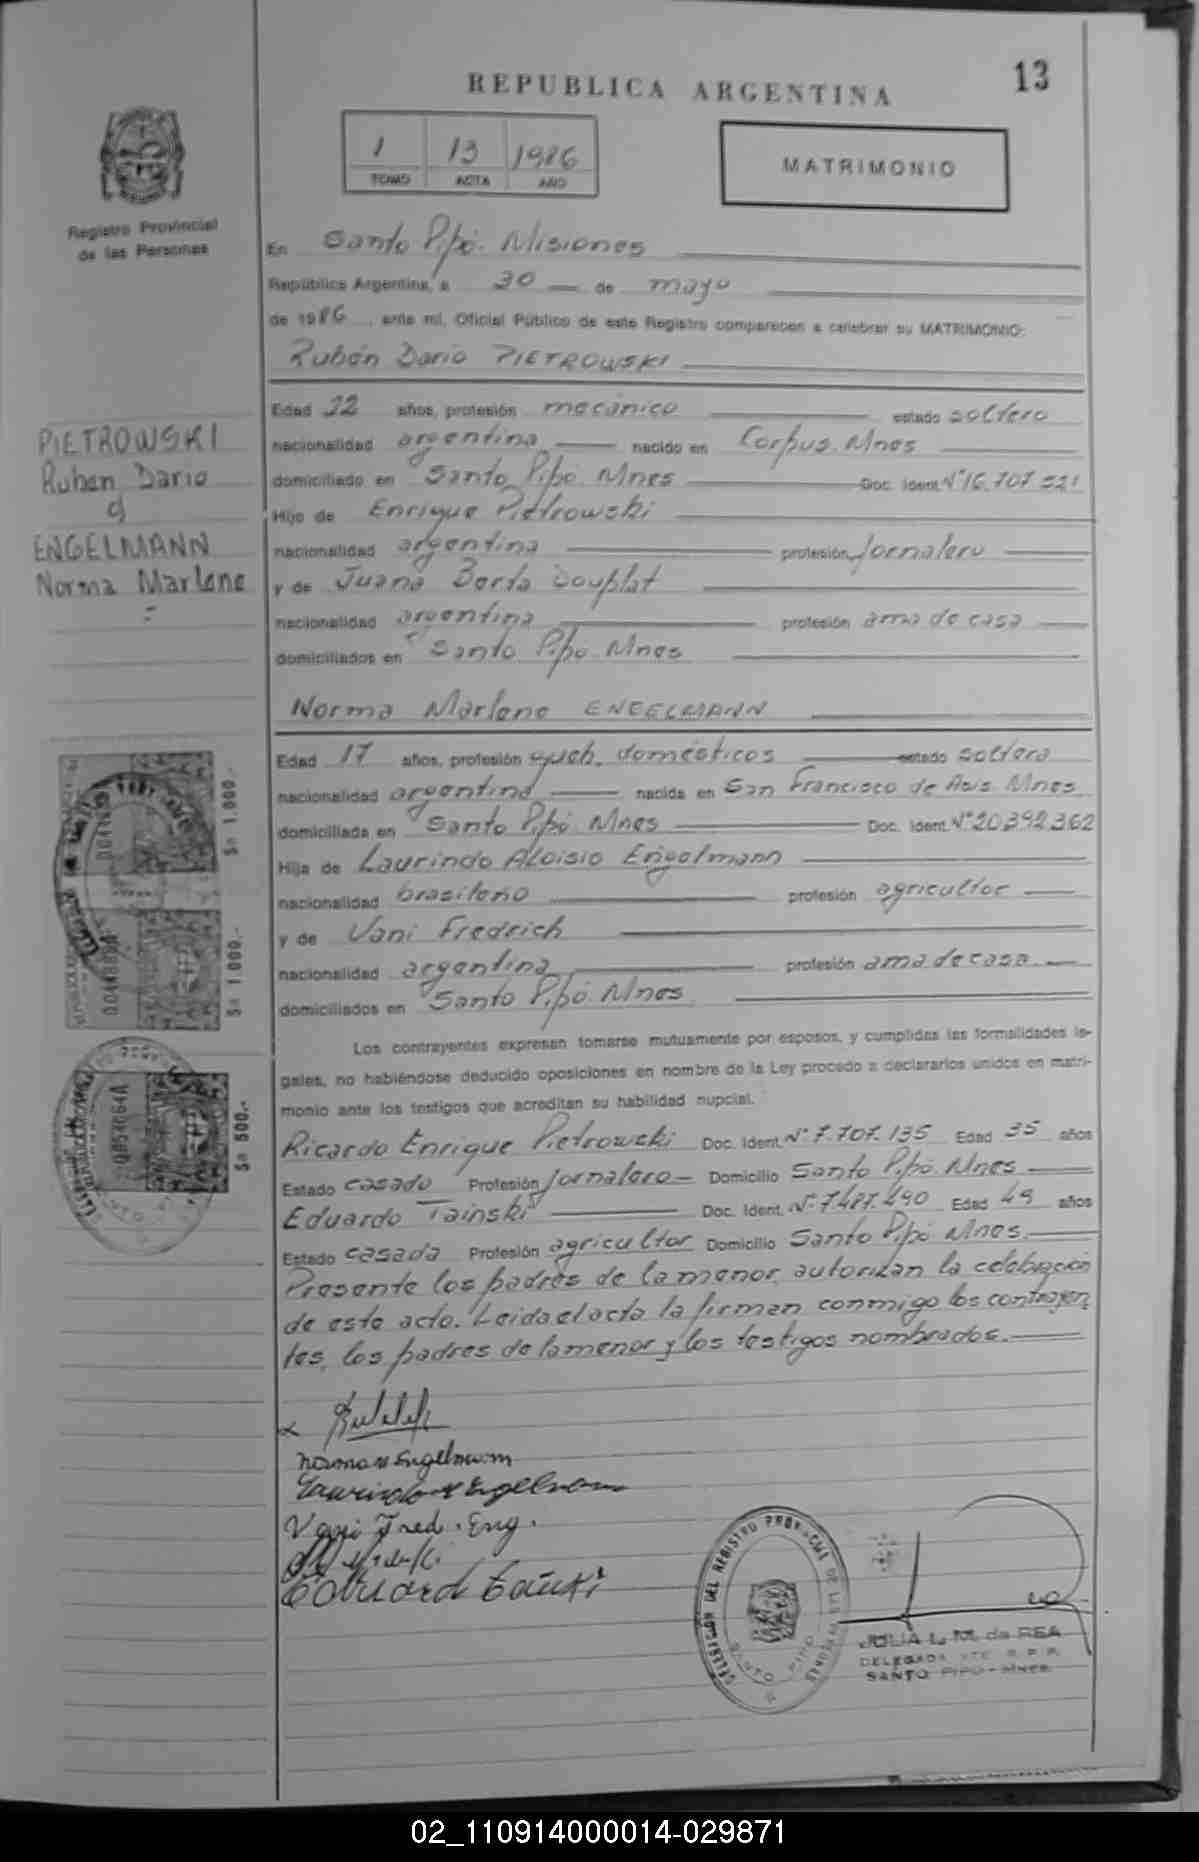 13
REPUBLICA ARGENTINA
1 13 1986
TOMO ACTA AÑO
MATRIMONIO
Registro Provincial
de las Personas
En Santo Pipó. Misiones
República Argentina, a 30 de mayo
de 1986, ante mí, Oficial Público de este Registro comparecen a celebrar su MATRIMONIO:
Rubén Dario PIETROWSKI
Edad 22 años, profesión mecánico estado soltero
nacionalidad argentina nacido en Corpus. Mnes
domiciliado en Santo Pipó Mnes Doc. Ident. Nº 16.707.521
Hijo de Enrique Pietrowski
nacionalidad argentina profesión jornalero
y de Juana Berta Douplat
nacionalidad argentina profesión ama de casa
domiciliados en Santo Pipó Mnes
PIETROWSKI
Ruben Dario
c/
ENGELMANN
Norma Marlene
Norma Marlene ENGELMANN
Edad 17 años, profesión queh. domésticos estado soltera
nacionalidad argentina nacida en San Francisco de Asis. Mnes
domiciliada en Santo Pipó Mnes Doc. Ident. Nº 20.392.362
Hija de Laurindo Aloisio Engelmann
nacionalidad brasileño profesión agricultor
y de Vani Fredrich
nacionalidad argentina profesión ama de casa
domiciliados en Santo Pipó Mnes
$a 1.000.-
$a 1.000.-
$a 500.-
Los contrayentes expresan tomarse mutuamente por esposos, y cumplidas las formalidades le-
gales, no habiéndose deducido oposiciones en nombre de la Ley procedo a declararlos unidos en matri-
monio ante los testigos que acreditan su habilidad nupcial.
Ricardo Enrique Pietrowski Doc. Ident. Nº 7.707.135 Edad 35 años
Estado casado Profesión jornalero Domicilio Santo Pipó Mnes
Eduardo Tainski Doc. Ident. Nº 7.487.490 Edad 49 años
Estado casada Profesión agricultor Domicilio Santo Pipó Mnes.
Presente los padres de la menor autorizan la celebración
de este acto. Leida el acta la firman conmigo los contrayen
tes, los padres de la menor y los testigos nombrados.
Norma M Engelmann
Laurindo A Engelmann
Vani Fred. Eng.
Eduardo Tainski
DELEGACION DEL REGISTRO PROVINCIAL DE LAS PERSONAS
SANTO PIPO
JULIA L. M. de REA
DELEGADA R. P. P.
SANTO PIPO - MNES.
02_110914000014-029871